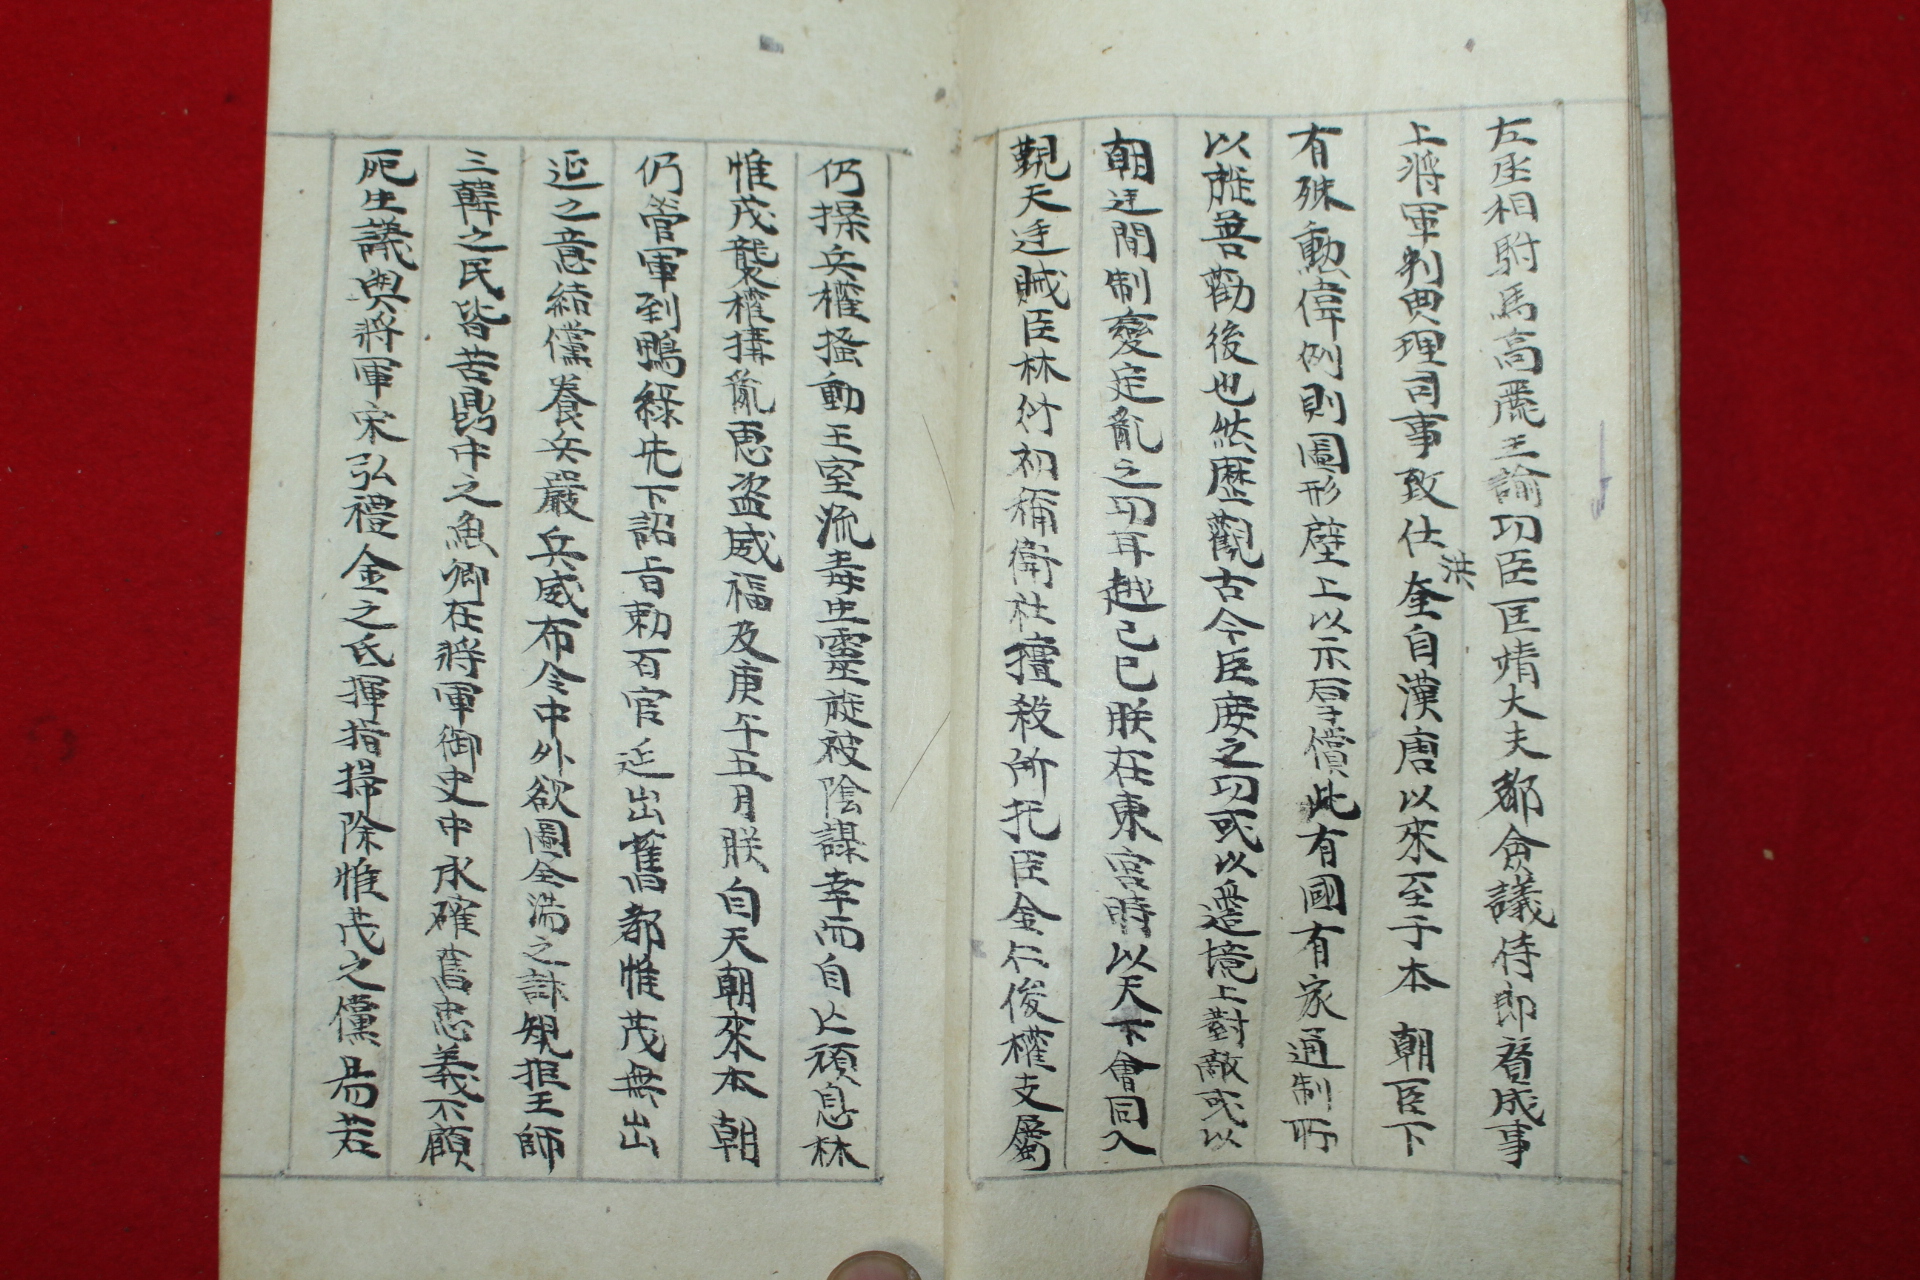 左丞相駙馬高麗王諭切臣匡靖大夫都僉議侍郎賛成事
上將軍判典理司事致仕洪奎自漢唐以來至于本 朝臣下
有殊勳偉例則圖形壁上以示厚償此有國有家通制所
以旌善勸後也然歷觀古今臣庶之切或以邊境上對敵或以
朝廷間制變定亂之切耳越己巳朕在東宮時以天下會同入
覲天廷賊臣林衍初稱衛社擅殺所托臣金仁俊權支屬
仍操兵權搔動王室流毒生靈旋被陰謀幸而自止頑息林
惟茂襲權搆亂恩盜威福及庚午五月朕自天朝來本朝
仍管軍到鴨綠先下詔旨勅百官迎出舊都惟茂無出
迎之意結儻養兵嚴兵威布令中外欲圖全湍之計規拒王師
三韓之民皆苦鼎中之魚卿在將軍御史中承確奮忠義不顧
死生議與將軍宋弘禮金之氐揮指掃除惟茂之儻易若